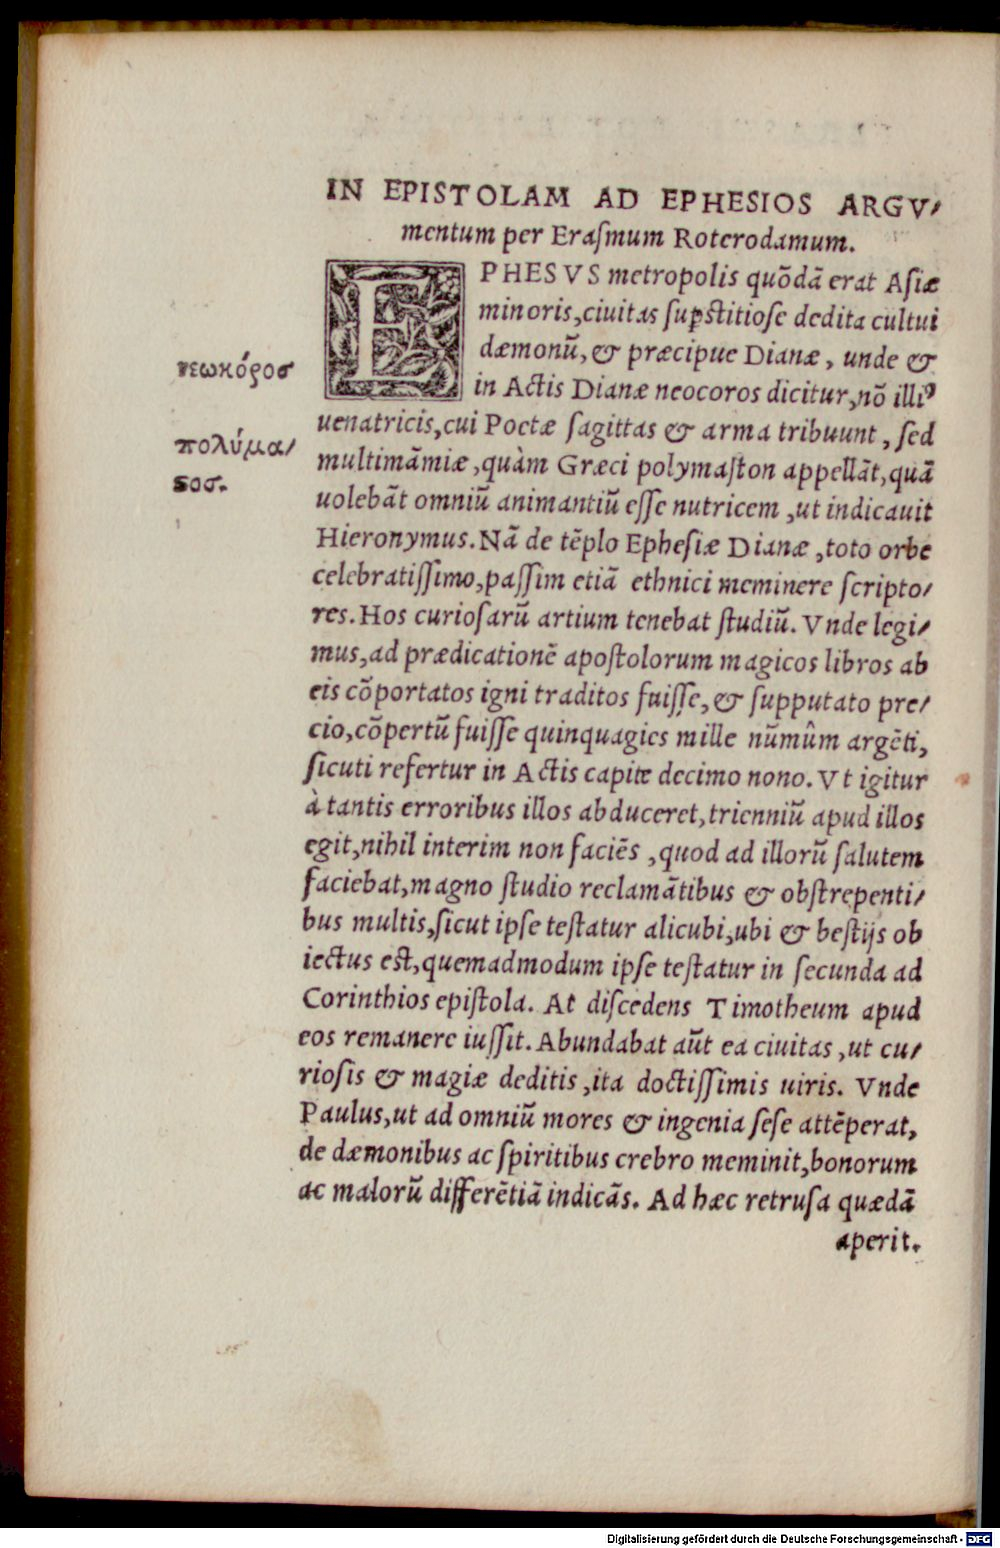 IN EPISTOLAM AD EPHESIOS ARGV/
mentum per Eraſmum Roterodamum.
EPHESVS metropolis quõdã erat Aſiæ
minoris,ciuitas ſupſtitioſe dedita cultui
dæmonũ, & præcipue Dianæ, unde &
νεωκόρος
in Actis Dianæ neocoros dicitur,nõ illiꝰ
uenatricis,cui Poetæ ſagittas & arma tribuunt, ſed
πολύμα/
multimãmiæ,quàm Græci polymaſton appellãt,quã
ϛος.
uolebãt omniũ animantiũ eſſe nutricem, ut indicauit
Hieronymus. Nã de tẽplo Epheſiæ Dianæ, toto orbe
celebratiſſimo,paſſim etiã ethnici meminere ſcripto/
res. Hos curioſarũ artium tenebat ſtudiũ. Vnde legi/
mus,ad prædicationẽ apoſtolorum magicos libros ab
eis cõportatos igni traditos fuiſſe, & ſupputato pre/
cio,cõpertũ fuiſſe quinquagies mille nũmûm argẽti,
ſicuti refertur in Actis capite decimo nono. Vt igitur
à tantis erroribus illos abduceret,trienniũ apud illos
egit,nihil interim non faciẽs, quod ad illorũ ſalutem
faciebat,magno ſtudio reclamãtibus & obſtrepenti/
bus multis,ſicut ipſe teſtatur alicubi,ubi & beſtijs ob
iectus eſt,quemadmodum ipſe teſtatur in ſecunda ad
Corinthios epiſtola. At diſcedens Timotheum apud
eos remanere iuſſit. Abundabat aũt ea ciuitas, ut cu/
rioſis & magiæ deditis, ita doctiſſimis uiris. Vnde
Paulus,ut ad omniũ mores & ingenia ſeſe attẽperat,
de dæmonibus ac ſpiritibus crebro meminit,bonorum
ac malorũ differẽtiã indicãs. Ad hæc retruſa quædã
aperit.
Digitalisierung gefördert durch die Deutsche Forschungsgemeinschaft - DFG